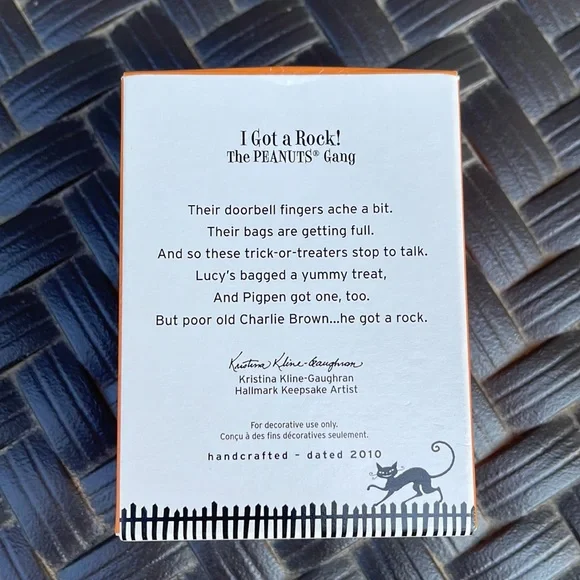 I Got a Rock!
The PEANUTS® Gang
Their doorbell fingers ache a bit.
Their bags are getting full.
And so these trick-or-treaters stop to talk.
Lucy's bagged a yummy treat,
And Pigpen got one, too.
But poor old Charlie Brown...he got a rock.
Kristina Kline-Gaughran
Kristina Kline-Gaughran
Hallmark Keepsake Artist
For decorative use only.
Conçu à des fins décoratives seulement.
handcrafted – dated 2010